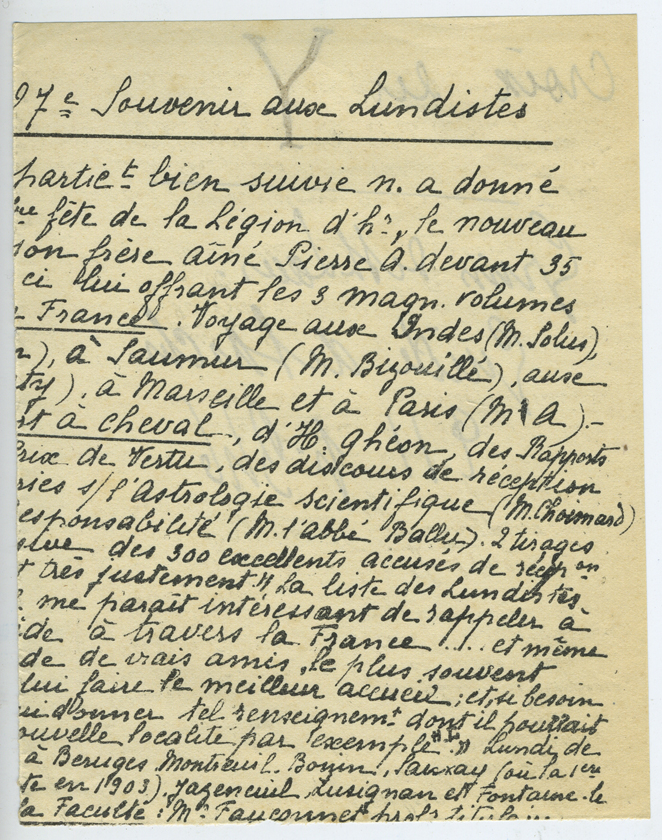 97e Souvenir aux Lundistes
partiet bien suivie n. a donné
re fête de la Légion d'hr, le nouveau
ion frère aîné Pierre A. devant 35
ci lui offrant les 3 magn. volumes
France. Voyage aux Indes (M. Solus),
), à Saumur (M. Bizouillé), aux
ty), à Marseille et à Paris (M. A).-
rt à cheval, d'H. ghéon, des Rapports
Prix de Vertu, des discours de réception
ries s/l'Astrologie scientifique (M. Choisnard)
responsabilité (M. l'abbé Ballu). 2 tirages
sive des 300 excellents accusés de récepon
t très justement "La liste des Lundistes
me paraît intéressant de rappeler à
ide à travers la France .... et même
de de vrais amis, le plus souvent
lui faire le meilleur accueil; et, si besoin
ui donner tel renseignemt dont il pourrait
ouvelle localité par exemple". Lundi de
à Beruges, Montreuil-Bonnin, Sanxay (où la 1ère
te en 1903), Jazeneuil, Lusignan et Fontaine-le
la Faculté: Mr Fauconnet profr titulaire
Croix